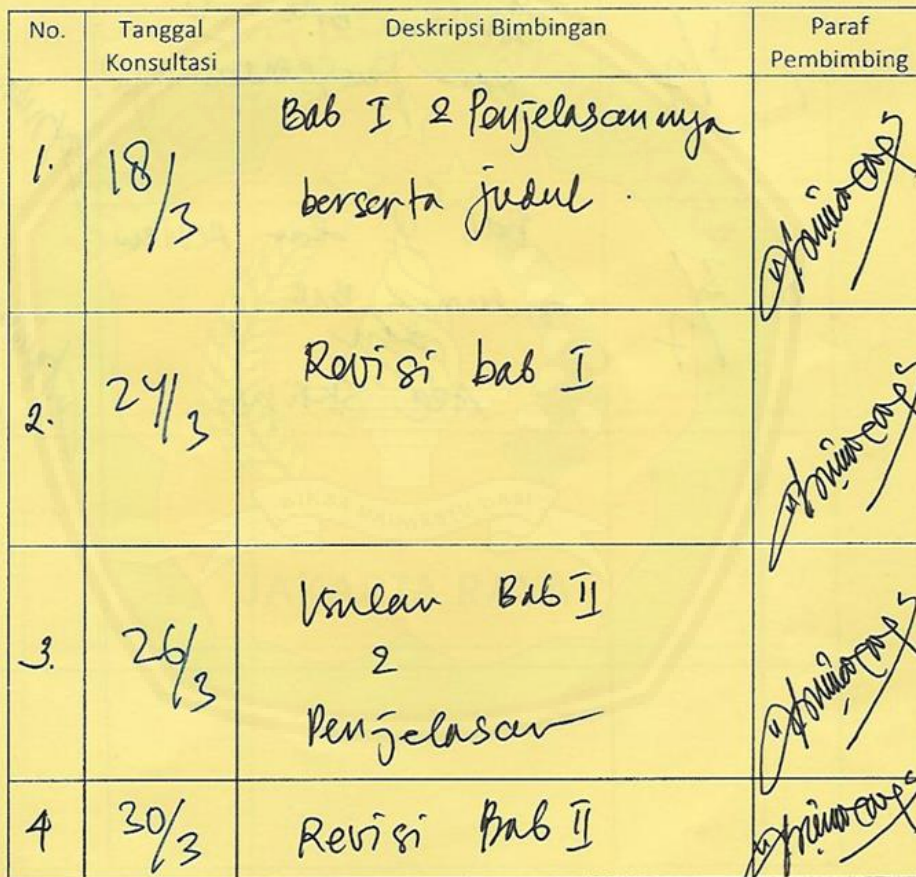 No.
Tanggal
Konsultasi
Deskripsi Bimbingan
Paraf
Pembimbing
1.
18/3
Bab I & Penjelasannya
berserta judul.
2.
24/3
Revisi bab I
3.
26/3
Usulan Bab II
&
Penjelasan
4
30/3
Revisi Bab II